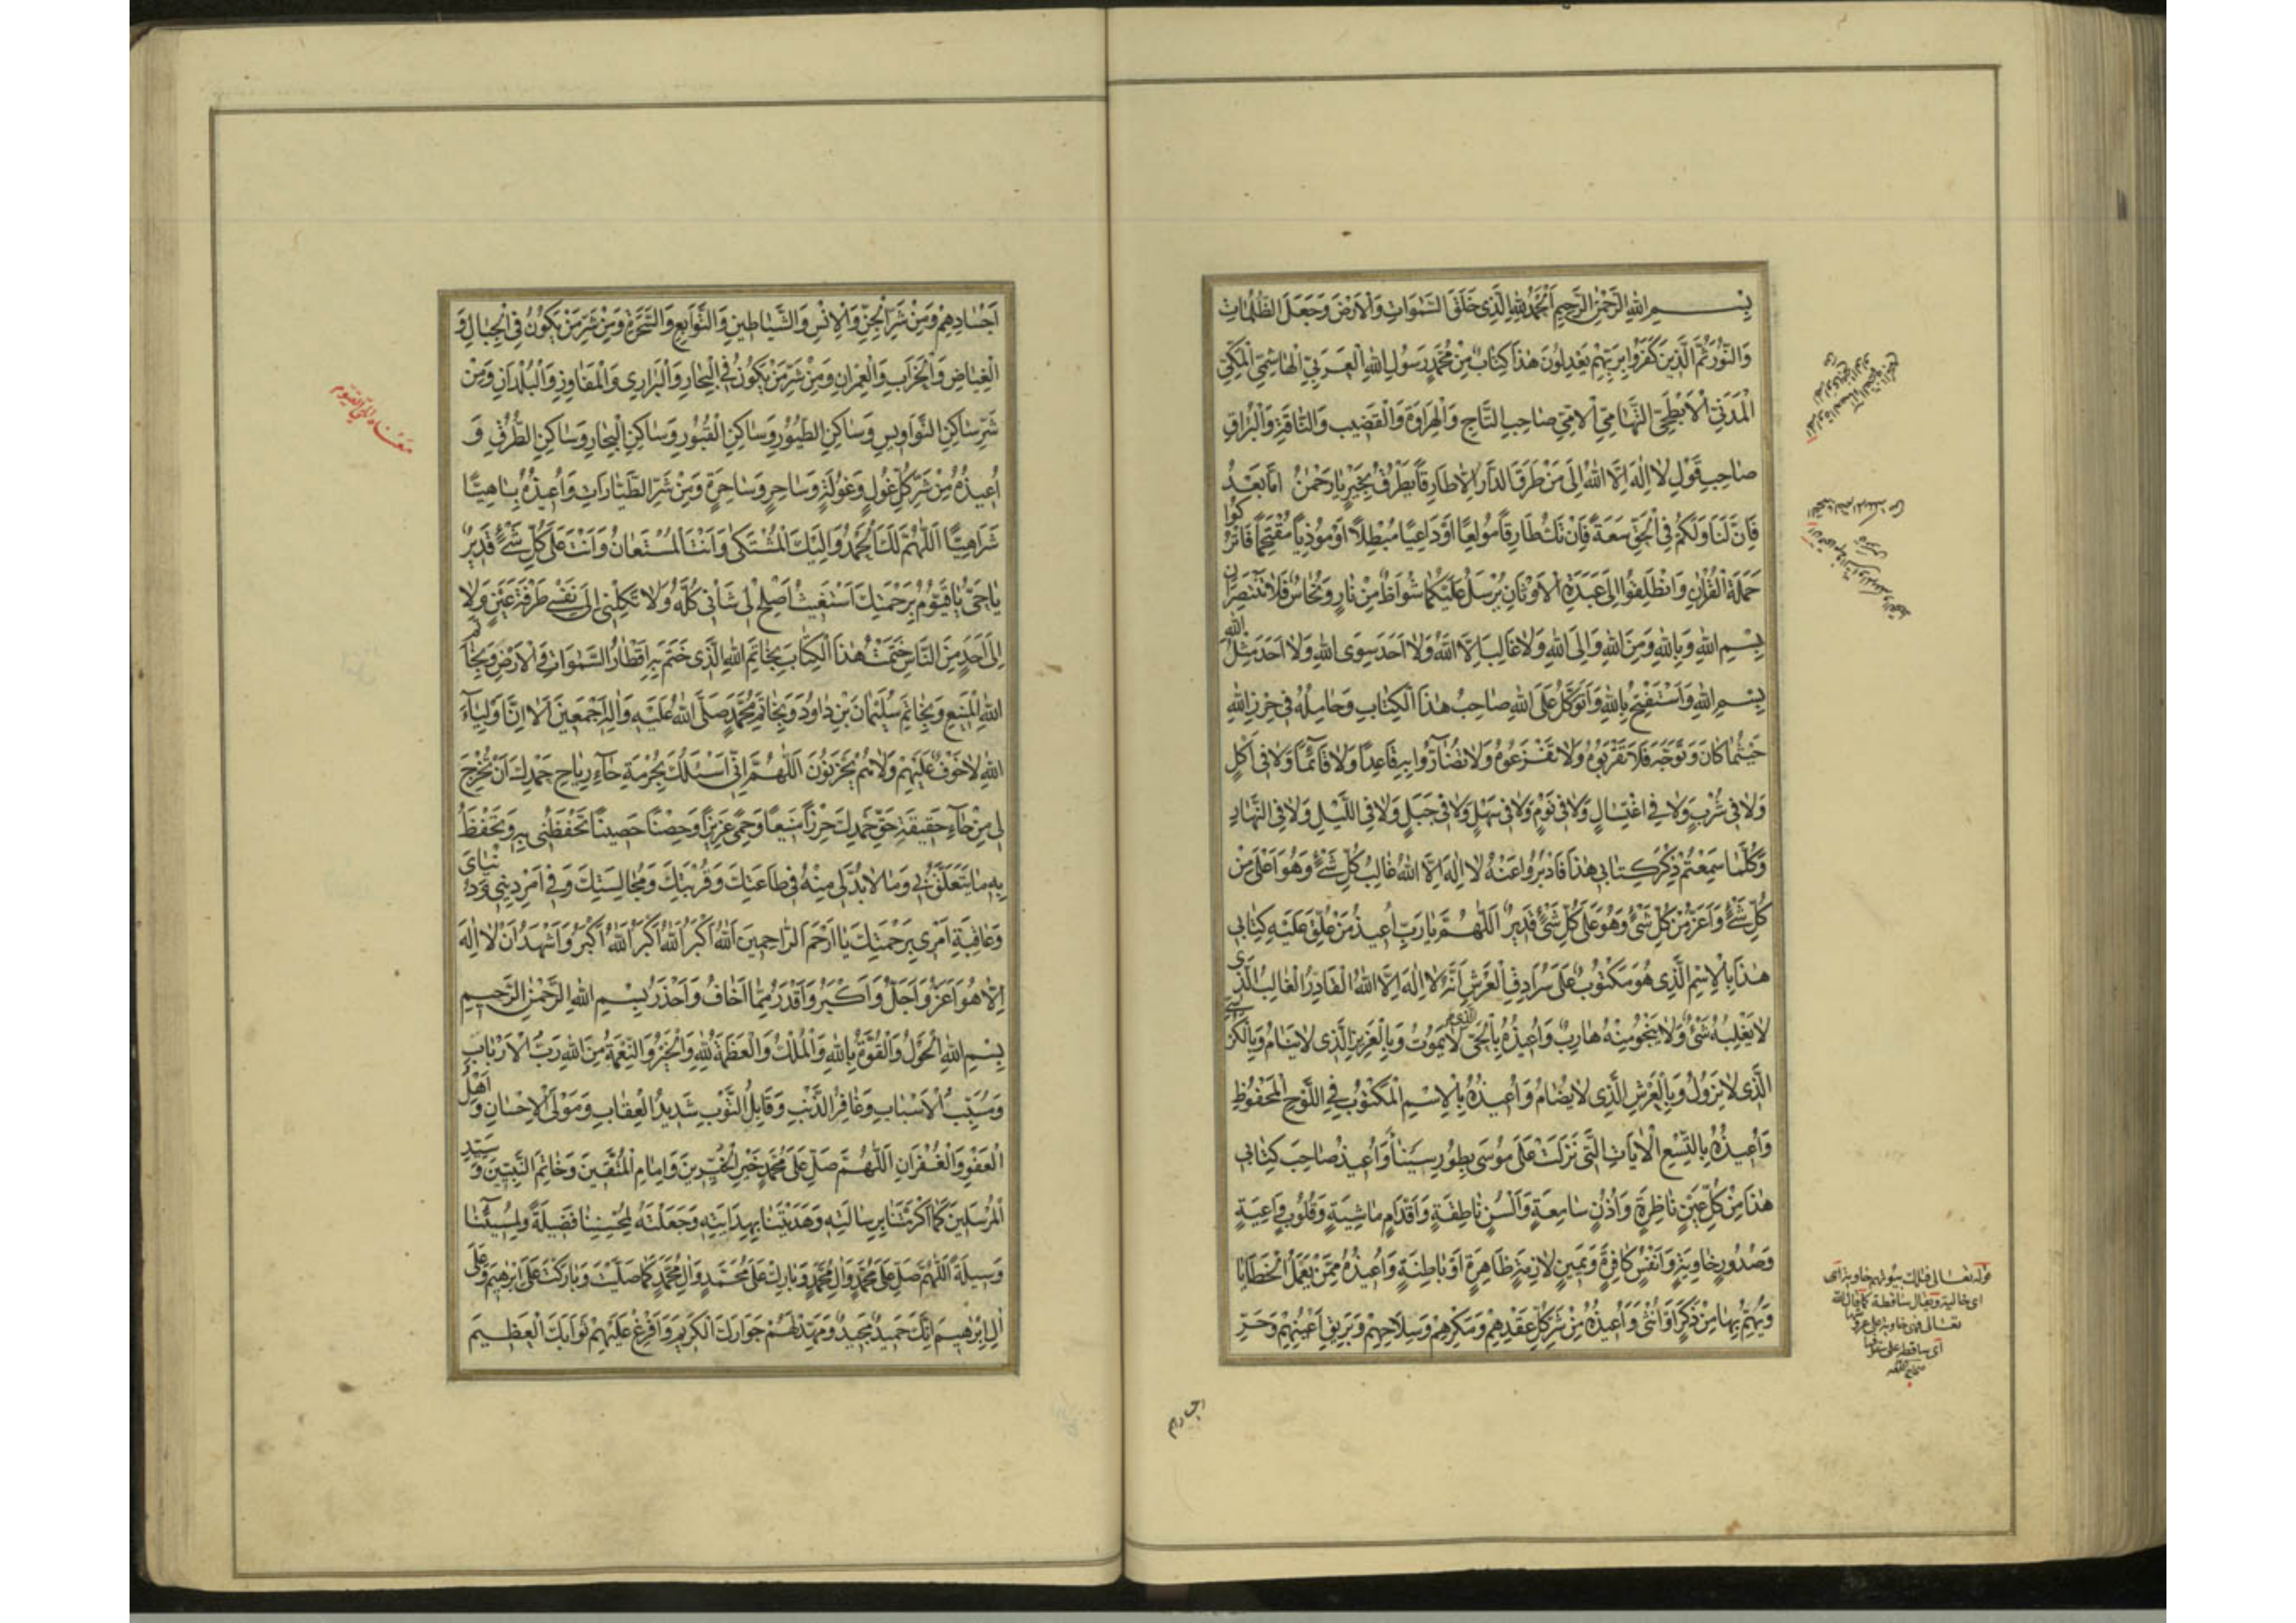 بِسْمِ اللهِ الرَّحْمٰنِ الرَّحِيمِ اَلْحَمْدُ لِلّٰهِ الَّذِى خَلَقَ السَّمٰوَاتِ وَالْاَرْضَ وَجَعَلَ الظُّلُمَاتِ
وَالنُّورَ ثُمَّ الَّذِينَ كَفَرُوا بِرَبِّهِمْ يَعْدِلُونَ هٰذَا كِتَابٌ مِنْ مُحَمَّدٍ رَسُولِ اللهِ الْعَرَبِىِّ الْهَاشِمِىِّ الْمَكِّىِّ
الْمَدَنِىِّ الْاَبْطَحِىِّ التِّهَامِىِّ الْاُمِّىِّ صَاحِبِ التَّاجِ وَالْهِرَاوَةِ وَالْقَضِيبِ وَالنَّاقَةِ وَالْبُرَاقِ
صَاحِبِ قَوْلِ لَا اِلٰهَ اِلَّا اللهُ اِلٰى مَنْ طَرَقَ الدَّارَ اِلَّا طَارِقًا يَطْرُقُ بِخَيْرٍ يَا رَحْمٰنُ اَمَّا بَعْدُ
فَاِنَّ لَنَا وَلَكُمْ فِى الْحَقِّ سَعَةً فَاِنْ تَكُ طَارِقًا مُولِعًا اَوْ دَاعِيًا مُبْطِلًا اَوْ مُوذِيًا مُقْتَحِمًا فَاتْرُكُوا
حَمَلَةَ الْقُرْاٰنِ وَانْطَلِقُوا اِلٰى عَبَدَةِ الْاَوْثَانِ يُرْسَلُ عَلَيْكُمَا شُوَاظٌ مِنْ نَارٍ وَنُحَاسٌ فَلَا تَنْتَصِرَانِ
بِسْمِ اللهِ وَبِاللهِ وَمِنَ اللهِ وَاِلَى اللهِ وَلَا غَالِبَ اِلَّا اللهُ وَلَا اَحَدَ سِوَى اللهِ وَلَا اَحَدَ مِثْلُ اللهِ
بِسْمِ اللهِ وَاَسْتَفْتِحُ بِاللهِ وَاَتَوَكَّلُ عَلَى اللهِ صَاحِبُ هٰذَا الْكِتَابِ وَحَامِلُهُ فِى حِرْزِ اللهِ
حَيْثُمَا كَانَ وَتَوَجَّهَ فَلَا تَقْرَبُوهُ وَلَا تَفْزَعُوهُ وَلَا تُضَارُّوا بِهِ قَاعِدًا وَلَا قَائِمًا وَلَا فِى اَكْلٍ
وَلَا فِى شُرْبٍ وَلَا فِى اغْتِسَالٍ وَلَا فِى نَوْمٍ وَلَا فِى سَهْلٍ وَلَا فِى جَبَلٍ وَلَا فِى اللَّيْلِ وَلَا فِى النَّهَارِ
وَكُلَّمَا سَمِعْتُمْ ذِكْرَ كِتَابِى هٰذَا فَادْبِرُوا عَنْهُ لَا اِلٰهَ اِلَّا اللهُ غَالِبُ كُلِّ شَىْءٍ وَهُوَ اَعْلٰى مِنْ
كُلِّ شَىْءٍ وَاَعَزُّ مِنْ كُلِّ شَىْءٍ وَهُوَ عَلٰى كُلِّ شَىْءٍ قَدِيرٌ اَللّٰهُمَّ يَا رَبِّ اُعِيذُ مَنْ عُلِّقَ عَلَيْهِ كِتَابِى
هٰذَا بِالْاِسْمِ الَّذِى هُوَ مَكْتُوبٌ عَلٰى سُرَادِقِ الْعَرْشِ اَنَّهُ لَا اِلٰهَ اِلَّا اللهُ الْقَادِرُ الْغَالِبُ الَّذِى
لَا يَغْلِبُهُ شَىْءٌ وَلَا يَنْجُو مِنْهُ هَارِبٌ وَاُعِيذُهُ بِالْحَىِّ الَّذِى لَا يَمُوتُ وَبِالْعَزِيزِ الَّذِى لَا يَنَامُ وَبِالْكُرْسِىِّ
الَّذِى لَا يَزُولُ وَبِالْعَرْشِ الَّذِى لَا يُضَامُ وَاُعِيذُهُ بِالْاِسْمِ الْمَكْتُوبِ فِى اللَّوْحِ الْمَحْفُوظِ
وَاُعِيذُهُ بِالتِّسْعِ الْاٰيَاتِ الَّتِى نَزَلَتْ عَلٰى مُوسٰى بِطُورِ سَيْنَاءَ وَاُعِيذُ صَاحِبَ كِتَابِى
هٰذَا مِنْ كُلِّ عَيْنٍ نَاظِرَةٍ وَاُذُنٍ سَامِعَةٍ وَاَلْسُنٍ نَاطِقَةٍ وَاَقْدَامٍ مَاشِيَةٍ وَقُلُوبٍ وَاعِيَةٍ
وَصُدُورٍ خَاوِيَةٍ وَاَنْفُسٍ كَافِرَةٍ وَيَمِينٍ لَازِمَةٍ ظَاهِرَةٍ اَوْ بَاطِنَةٍ وَاُعِيذُهُ مِمَّنْ يَعْمَلُ الْخَطَايَا
وَيَهُمُّ بِهَا مِنْ ذَكَرٍ اَوْ اُنْثٰى وَاُعِيذُهُ مِنْ شَرِّ كُلِّ عَقْدِهِمْ وَمَكْرِهِمْ وَسِلَاحِهِمْ وَبَرِيقِ اَعْيُنِهِمْ وَحَرِّ
قوله تعالى فتلك بيوتهم خاوية اى
اى خالية ويقال ساقطة كما قال الله
تعالى فهى خاوية على عروشها
اى ساقطة على سقوفها
اجسادهم
اَجْسَادِهِمْ وَمِنْ شَرِّ الْجِنِّ وَالْاِنْسِ وَالشَّيَاطِينِ وَالتَّوَابِعِ وَالسَّحَرَةِ وَمِنْ شَرِّ مَنْ يَكُونُ فِى الْجِبَالِ وَ
الْغِيَاضِ وَالْخَرَابِ وَالْعِمْرَانِ وَمِنْ شَرِّ مَنْ يَكُونُ فِى الْبِحَارِ وَالْبَرَارِى وَالْمَفَاوِزِ وَالْبُلْدَانِ وَمِنْ
شَرِّ سَاكِنِ النَّوَاوِيسِ وَسَاكِنِ الطُّيُورِ وَسَاكِنِ الْقُبُورِ وَسَاكِنِ الْبِحَارِ وَسَاكِنِ الطُّرُقِ وَ
اُعِيذُهُ مِنْ شَرِّ كُلِّ غُولٍ وَغُولَةٍ وَسَاحِرٍ وَسَاحِرَةٍ وَمِنْ شَرِّ الطَّيَّارَاتِ وَاُعِيذُهُ بِاَهِيًّا
شَرَاهِيًّا اَللّٰهُمَّ لَكَ الْحَمْدُ وَاِلَيْكَ الْمُشْتَكٰى وَاَنْتَ الْمُسْتَعَانُ وَاَنْتَ عَلٰى كُلِّ شَىْءٍ قَدِيرٌ
يَا حَىُّ يَا قَيُّومُ بِرَحْمَتِكَ اَسْتَغِيثُ اَصْلِحْ لِى شَانِى كُلَّهُ وَلَا تَكِلْنِى اِلٰى نَفْسِى طَرْفَةَ عَيْنٍ وَلَا
اِلٰى اَحَدٍ مِنَ النَّاسِ خَتَمْتُ هٰذَا الْكِتَابَ بِخَاتَمِ اللهِ الَّذِى خَتَمَ بِهِ اَقْطَارَ السَّمٰوَاتِ وَالْاَرْضِ وَبِخَاتَمِ
اللهِ الْمَنِيعِ وَبِخَاتَمِ سُلَيْمَانَ بْنِ دَاوُدَ وَبِخَاتَمِ مُحَمَّدٍ صَلَّى اللهُ عَلَيْهِ وَاٰلِهِ اَجْمَعِينَ اَلَا اِنَّ اَوْلِيَاءَ
اللهِ لَا خَوْفٌ عَلَيْهِمْ وَلَا هُمْ يَحْزَنُونَ اَللّٰهُمَّ اِنِّى اَسْئَلُكَ بِحُرْمَةِ حَاءِ رِيَاحِ حَمْدِكَ اَنْ تُخْرِجَ
لِى مِنْ حَاءِ حَقِيقَةِ حَقِّ حَمْدِكَ حِرْزًا مَنِيعًا وَحِمًى عَزِيزًا وَحِصْنًا حَصِينًا تَحْفَظُنِى بِهِ وَتَحْفَظُ
بِهِ مَا يَتَعَلَّقُ بِى وَمَا لَا بُدَّ لِى مِنْهُ فِى طَاعَتِكَ وَقُرْبَتِكَ وَمُجَالَسَتِكَ وَفِى اَمْرِ دِينِى وَدُنْيَاىَ
وَعَاقِبَةِ اَمْرِى بِرَحْمَتِكَ يَا اَرْحَمَ الرَّاحِمِينَ اَللهُ اَكْبَرُ اَللهُ اَكْبَرُ اَللهُ اَكْبَرُ وَاَشْهَدُ اَنْ لَا اِلٰهَ
اِلَّا هُوَ اَعَزُّ وَاَجَلُّ وَاَكْبَرُ وَاَقْدَرُ مِمَّا اَخَافُ وَاَحْذَرُ بِسْمِ اللهِ الرَّحْمٰنِ الرَّحِيمِ
بِسْمِ اللهِ الْحَوْلُ وَالْقُوَّةُ بِاللهِ وَالْمُلْكُ وَالْعَظَمَةُ لِلّٰهِ وَالْخَيْرُ وَالنِّعْمَةُ مِنَ اللهِ رَبِّ الْاَرْبَابِ
وَمُسَبِّبُ الْاَسْبَابِ وَغَافِرُ الذَّنْبِ وَقَابِلُ التَّوْبِ شَدِيدُ الْعِقَابِ وَمَوْلَى الْاِحْسَانِ وَاَهْلُ
الْعَفْوِ وَالْغُفْرَانِ اَللّٰهُمَّ صَلِّ عَلٰى مُحَمَّدٍ خَيْرِ الْخَيِّرِينَ وَاِمَامِ الْمُتَّقِينَ وَخَاتَمِ النَّبِيِّينَ وَسَيِّدِ
الْمُرْسَلِينَ كَمَا اَكْرَمْتَنَا بِرِسَالَتِهِ وَهَدَيْتَنَا بِهِدَايَتِهِ وَجَعَلْتَهُ لِمُحْسِنِنَا فَضِيلَةً وَلِمُسِيئِنَا
وَسِيلَةً اَللّٰهُمَّ صَلِّ عَلٰى مُحَمَّدٍ وَاٰلِ مُحَمَّدٍ وَبَارِكْ عَلٰى مُحَمَّدٍ وَاٰلِ مُحَمَّدٍ كَمَا صَلَّيْتَ وَبَارَكْتَ عَلٰى اِبْرٰهِيمَ وَعَلٰى
اٰلِ اِبْرٰهِيمَ اِنَّكَ حَمِيدٌ مَجِيدٌ وَمَهِّدْ لَهُمْ جِوَارَكَ الْكَرِيمَ وَاَفْرِغْ عَلَيْهِمْ ثَوَابَكَ الْعَظِيمَ
معناه الحى القيوم